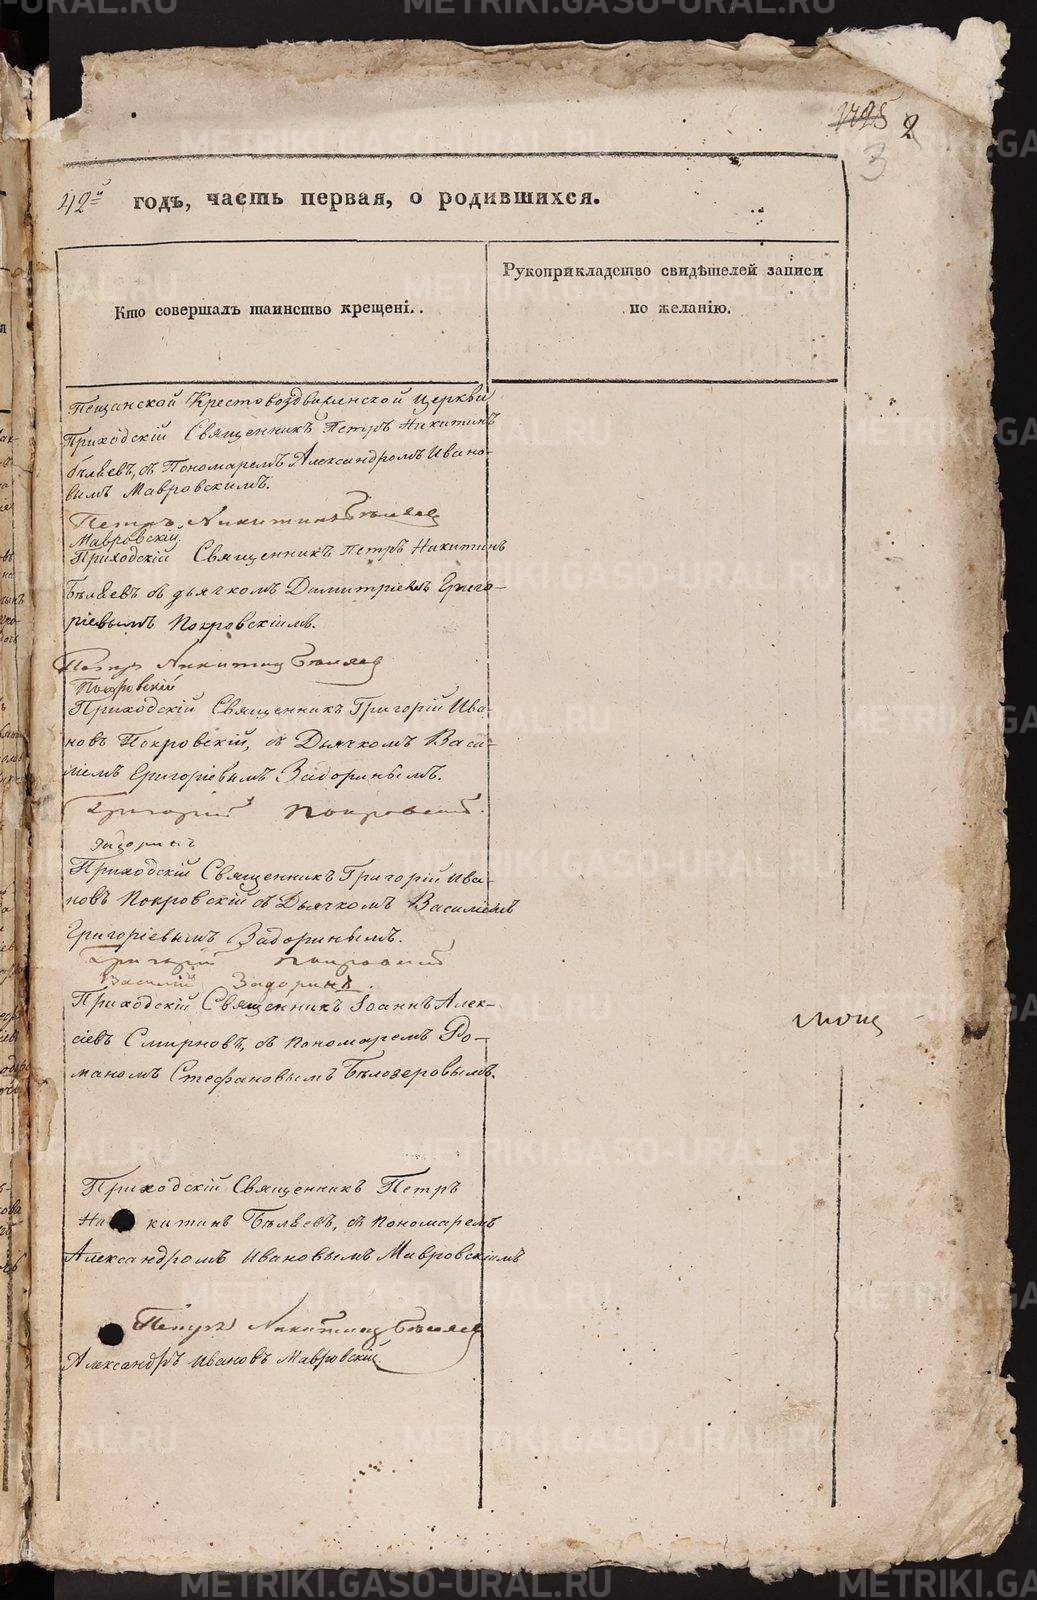 1425 2
3
42й годъ, часть первая, о родившихся.
Кто совершалъ таинство крещені..
Рукоприкладство свидѣтелей записи
по желанію.
Пещанской Крестовоздвиженской Церкви
Приходскій Священникъ Петръ Никитинъ
Бѣляевъ, съ Пономаремъ Александромъ Ивано-
вымъ Мавровскимъ.
Петръ Никитинъ Бѣляев
Мавровскій.
Приходскій Священникъ Петръ Никитинъ
Бѣляевъ съ дьячкомъ Димитріемъ Григо-
ріевымъ Покровскіимъ.
Петръ Никитинъ Бѣляев
Покровскій
Приходскій Священникъ Григорій Ива-
новъ Покровскій, съ Дьячкомъ Васи-
ліемъ Григоріевымъ Задоринымъ.
Григорій Покровскій.
Задоринъ
Приходскій Священникъ Григорій Ива-
новъ Покровскій съ Дьячкомъ Василіемъ
Григоріевымъ Задоринымъ.
Григорій Покровскій
Василій Задоринъ.
Приходскій Священникъ Іоаннъ Алек-
сіевъ Смирновъ, съ Пономаремъ Ро-
маномъ Стефановымъ Бѣлозеровымъ.
Приходскій Священникъ Петръ
Никитинъ Бѣляевъ, съ Пономаремъ
Александромъ Ивановымъ Мавровскіимъ
Петръ Никитинъ Бѣляев
Александръ Ивановъ Мавровскій.
METRIKI.GASO-URAL.RU